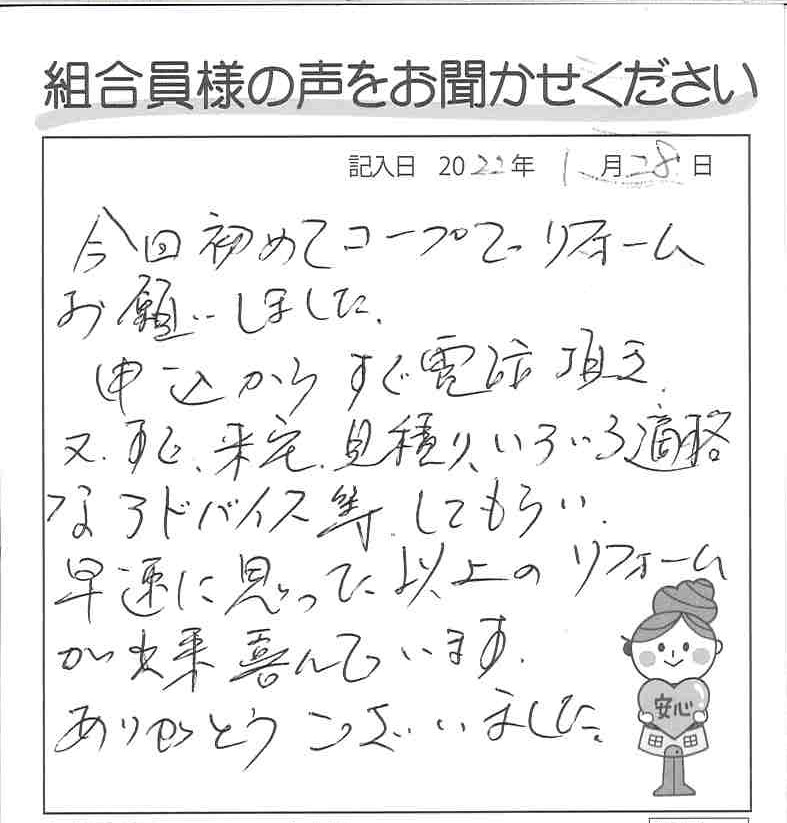 組合員様の声をお聞かせください
記入日 2022年 1月28日
今回初めてコープでリフォーム
お願いしました。
申込からすぐ電話頂き、
又、すぐ、来宅、見積り、いろいろ適格
なアドバイス等、してもらい、
早速に思った以上のリフォーム
が出来喜んでいます。
ありがとうございました。
安心